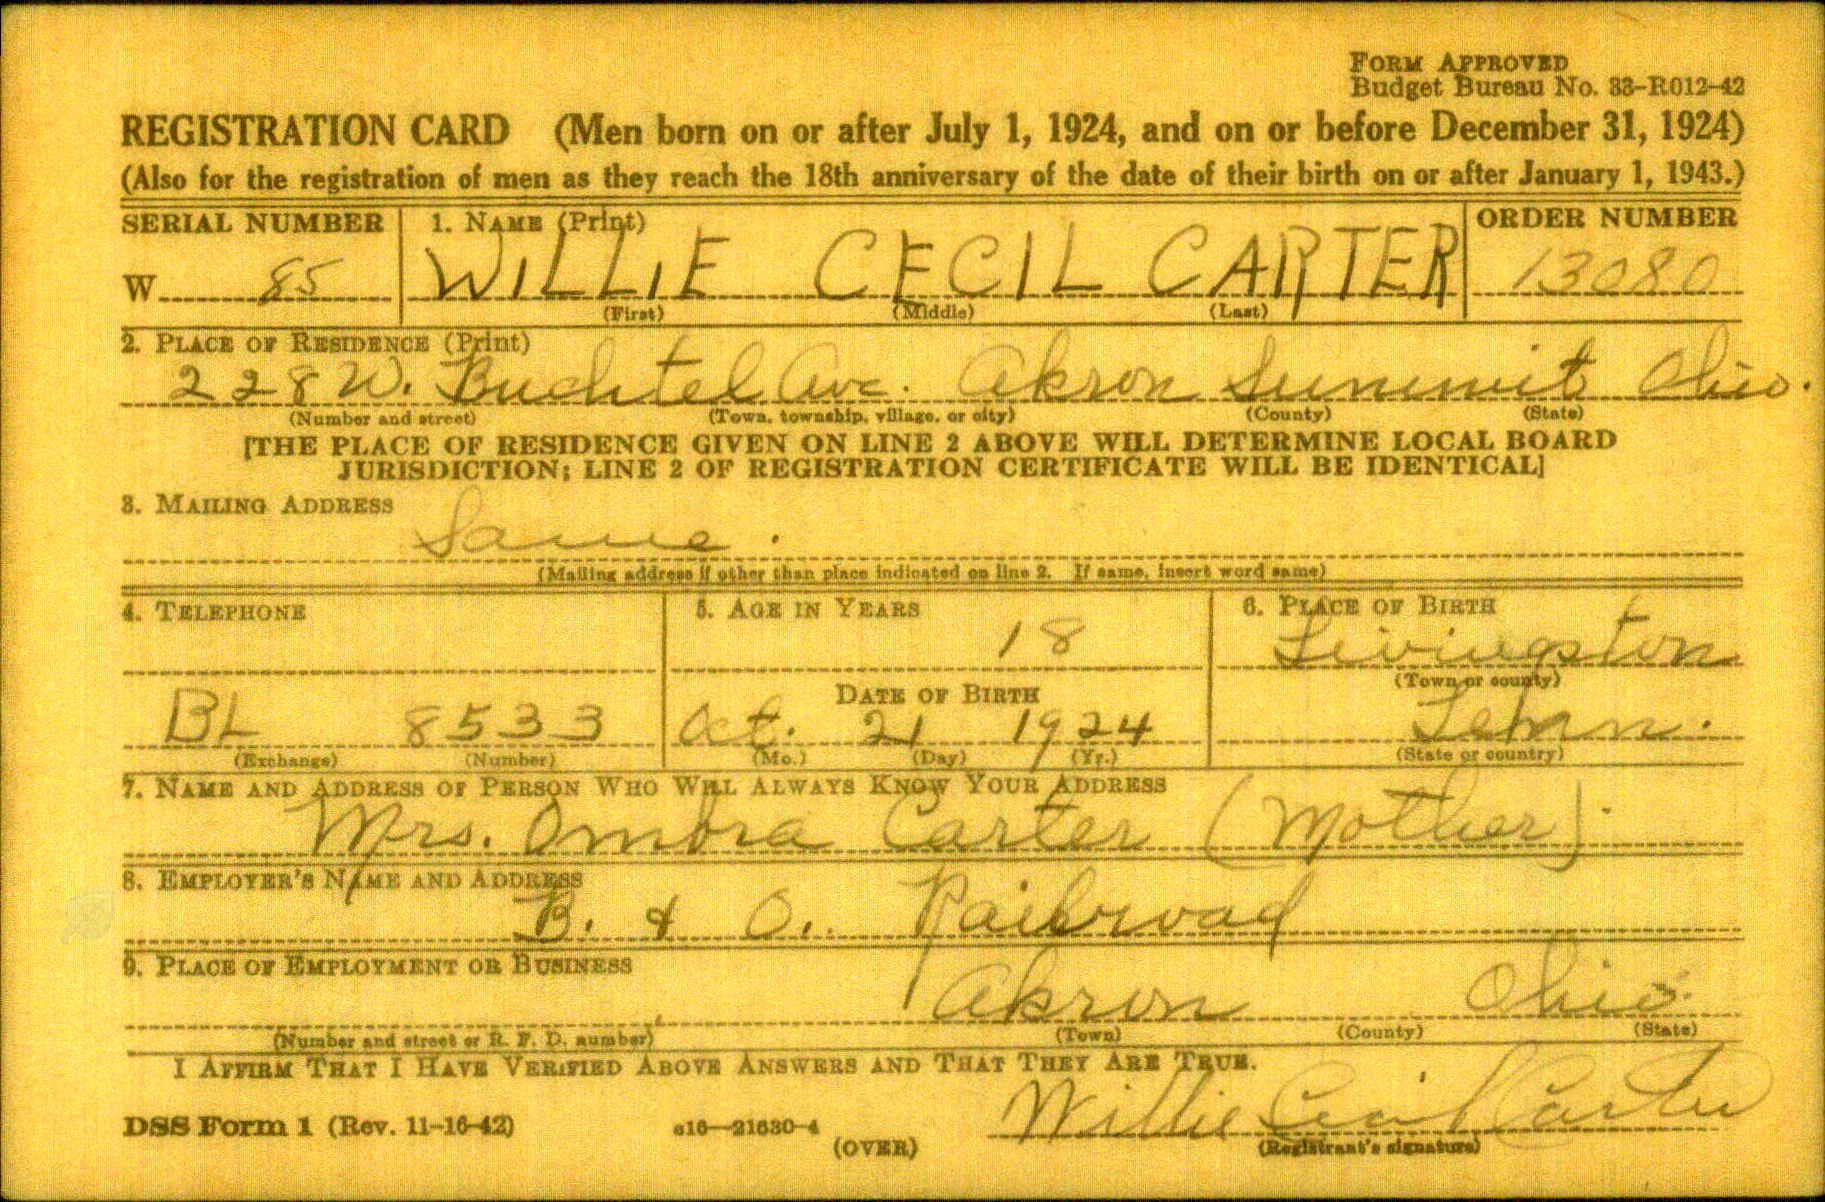 FORM APPROVED
Budget Bureau No. 33-R012-42
REGISTRATION CARD (Men born on or after July 1, 1924, and on or before December 31, 1924)
(Also for the registration of men as they reach the 18th anniversary of the date of their birth on or after January 1, 1943.)
SERIAL NUMBER 1. NAME (Print) ORDER NUMBER
W 85 WILLIE CECIL CARTER 13080
(First) (Middle) (Last)
2. PLACE OF RESIDENCE (Print)
228 W. Buchtel Ave. Akron Summit Ohio.
(Number and street) (Town, township, village, or city) (County) (State)
[THE PLACE OF RESIDENCE GIVEN ON LINE 2 ABOVE WILL DETERMINE LOCAL BOARD
JURISDICTION; LINE 2 OF REGISTRATION CERTIFICATE WILL BE IDENTICAL]
3. MAILING ADDRESS
Same.
(Mailing address if other than place indicated on line 2. If same, insert word same)
4. TELEPHONE 5. AGE IN YEARS 6. PLACE OF BIRTH
18 Livingston
(Town or county)
DATE OF BIRTH
BL 8533 Oct. 21 1924 Tenn.
(Exchange) (Number) (Mo.) (Day) (Yr.) (State or country)
7. NAME AND ADDRESS OF PERSON WHO WILL ALWAYS KNOW YOUR ADDRESS
Mrs. Ombra Carter (Mother).
8. EMPLOYER'S NAME AND ADDRESS
B. & O. Railroad
9. PLACE OF EMPLOYMENT OR BUSINESS
Akron Ohio.
(Number and street or R. F. D. number) (Town) (County) (State)
I AFFIRM THAT I HAVE VERIFIED ABOVE ANSWERS AND THAT THEY ARE TRUE.
DSS Form 1 (Rev. 11-16-42) 16—21630-4 Willie Cecil Carter
(OVER) (Registrant's signature)